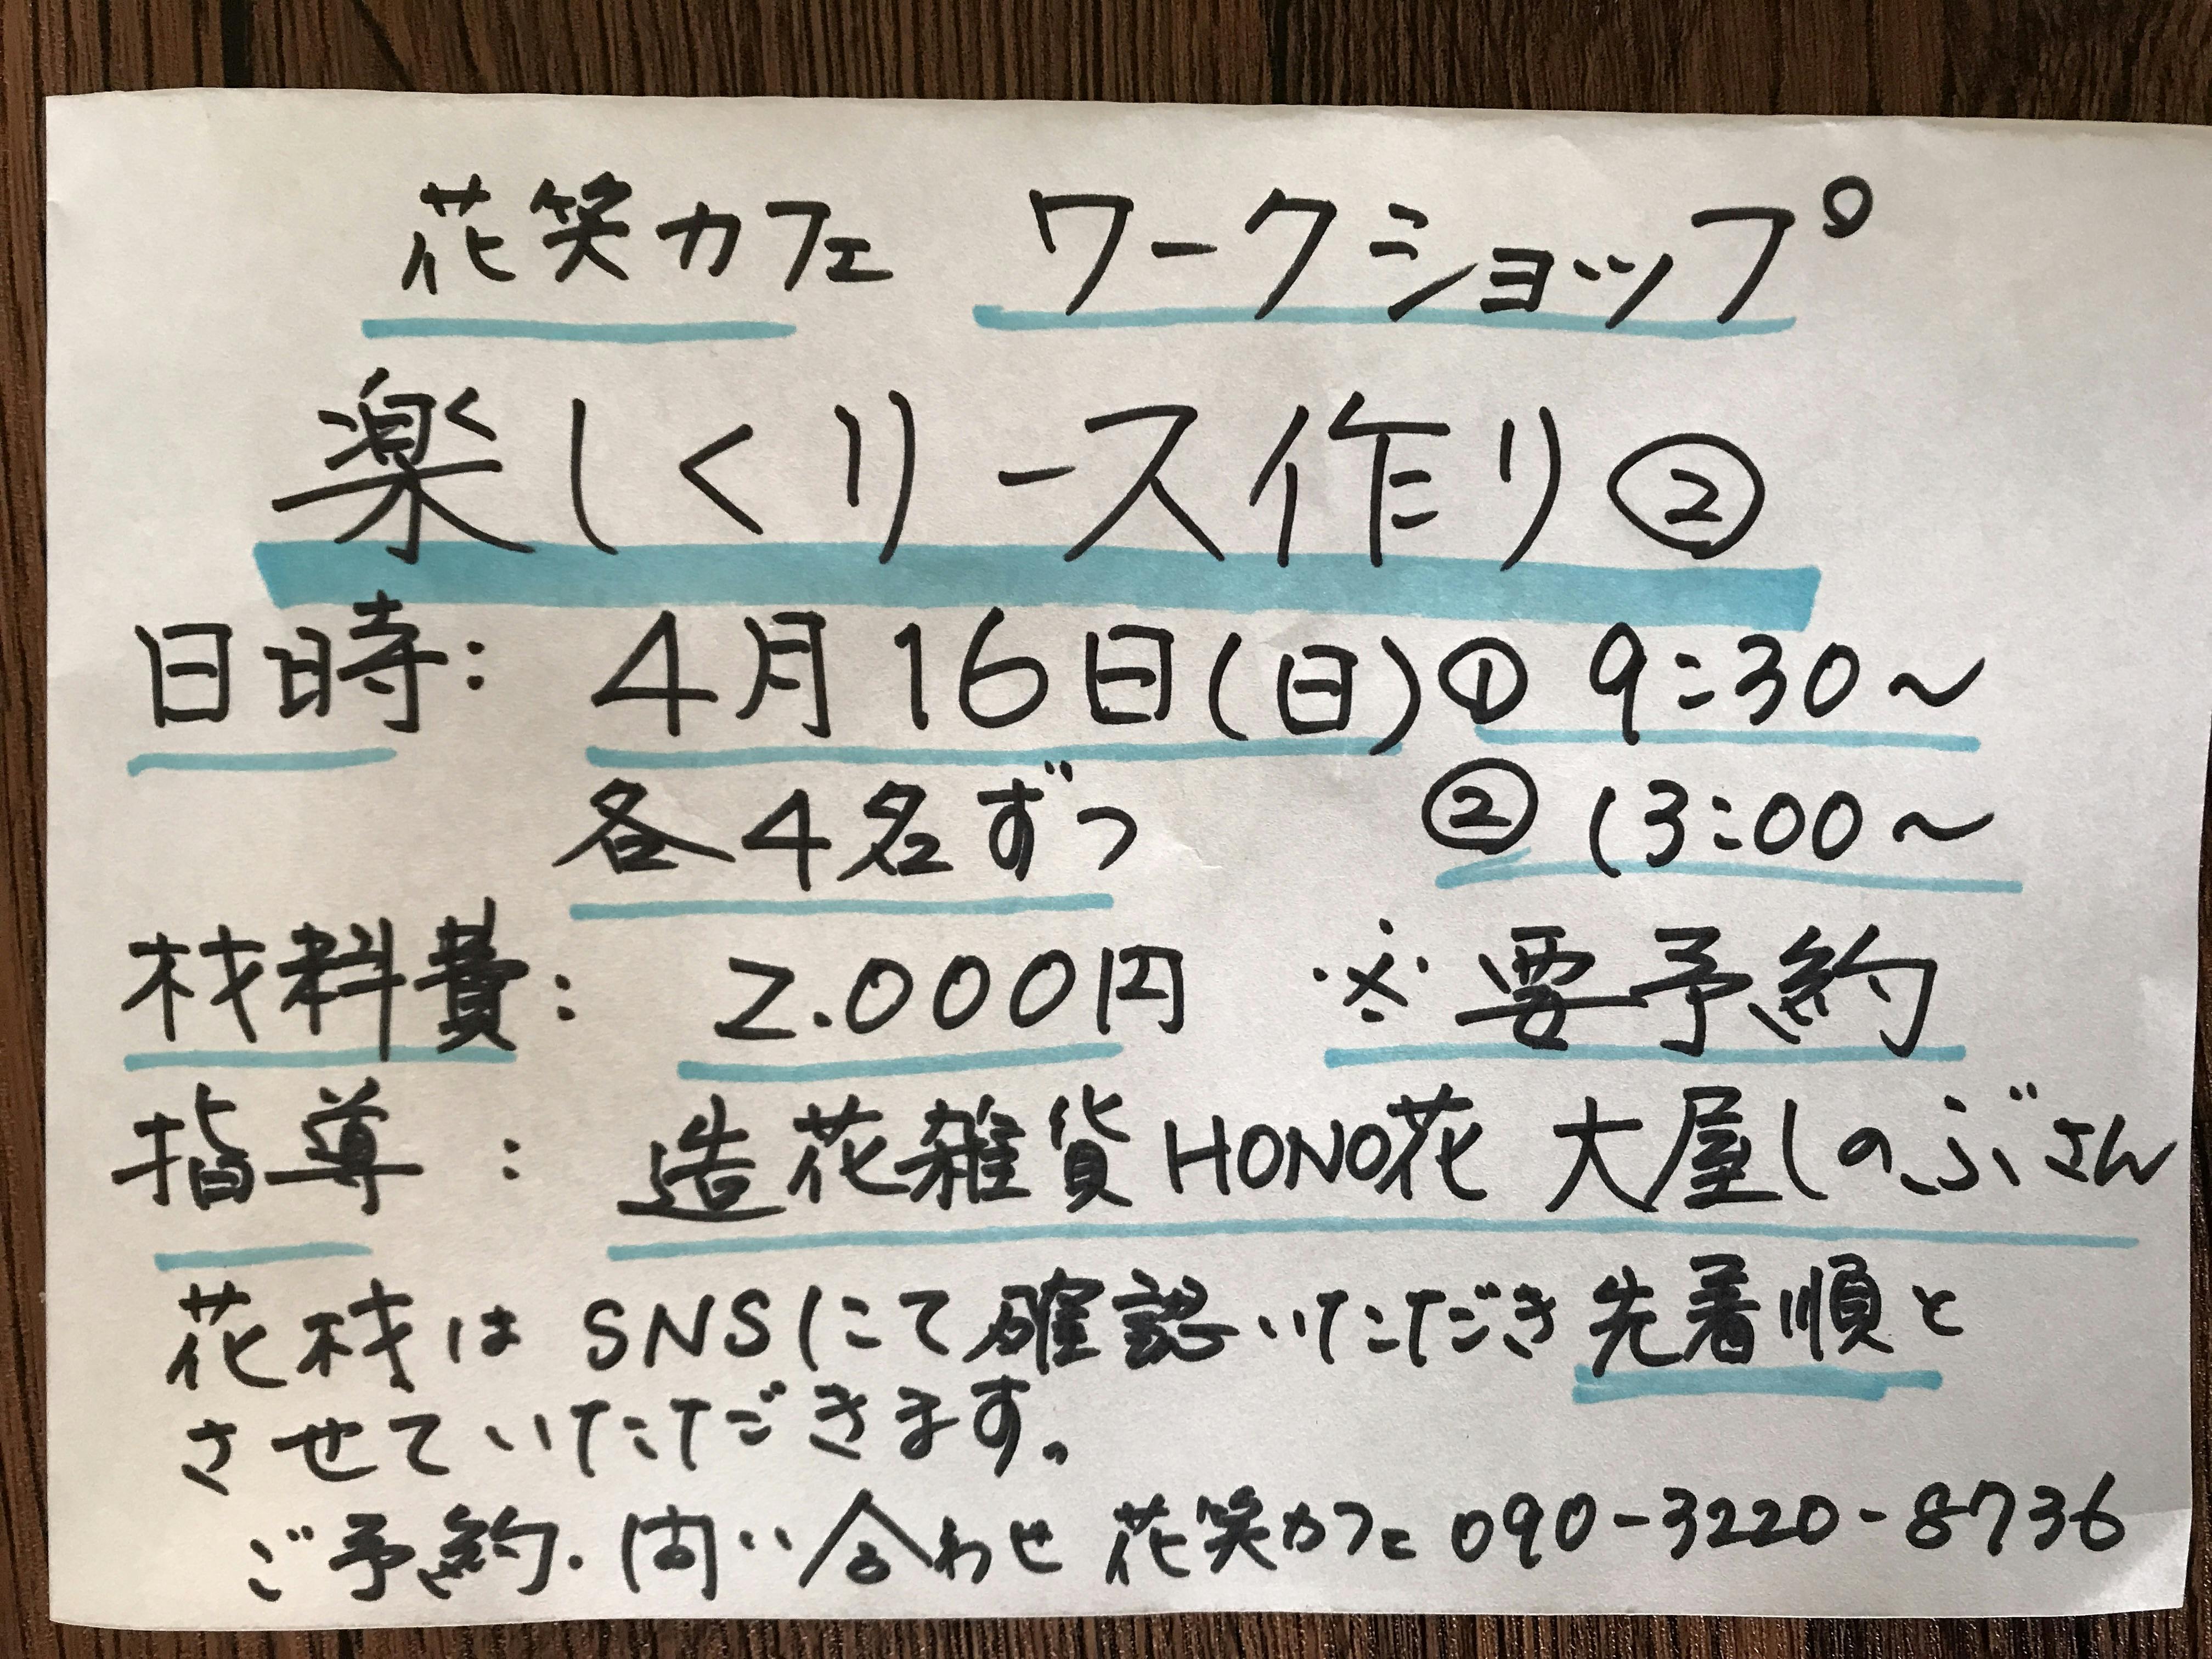 花笑カフェ ワークショップ
楽しくリース作り②
日時: 4月16日(日)① 9:30～
各4名ずつ ② 13:00～
材料費: 2.000円 ※要予約
指導 : 造花雑貨HONO花 大屋しのぶさん
花材は SNSにて確認いただき先着順と
させていただきます。
ご予約・問い合わせ 花笑カフェ 090-3220-8736